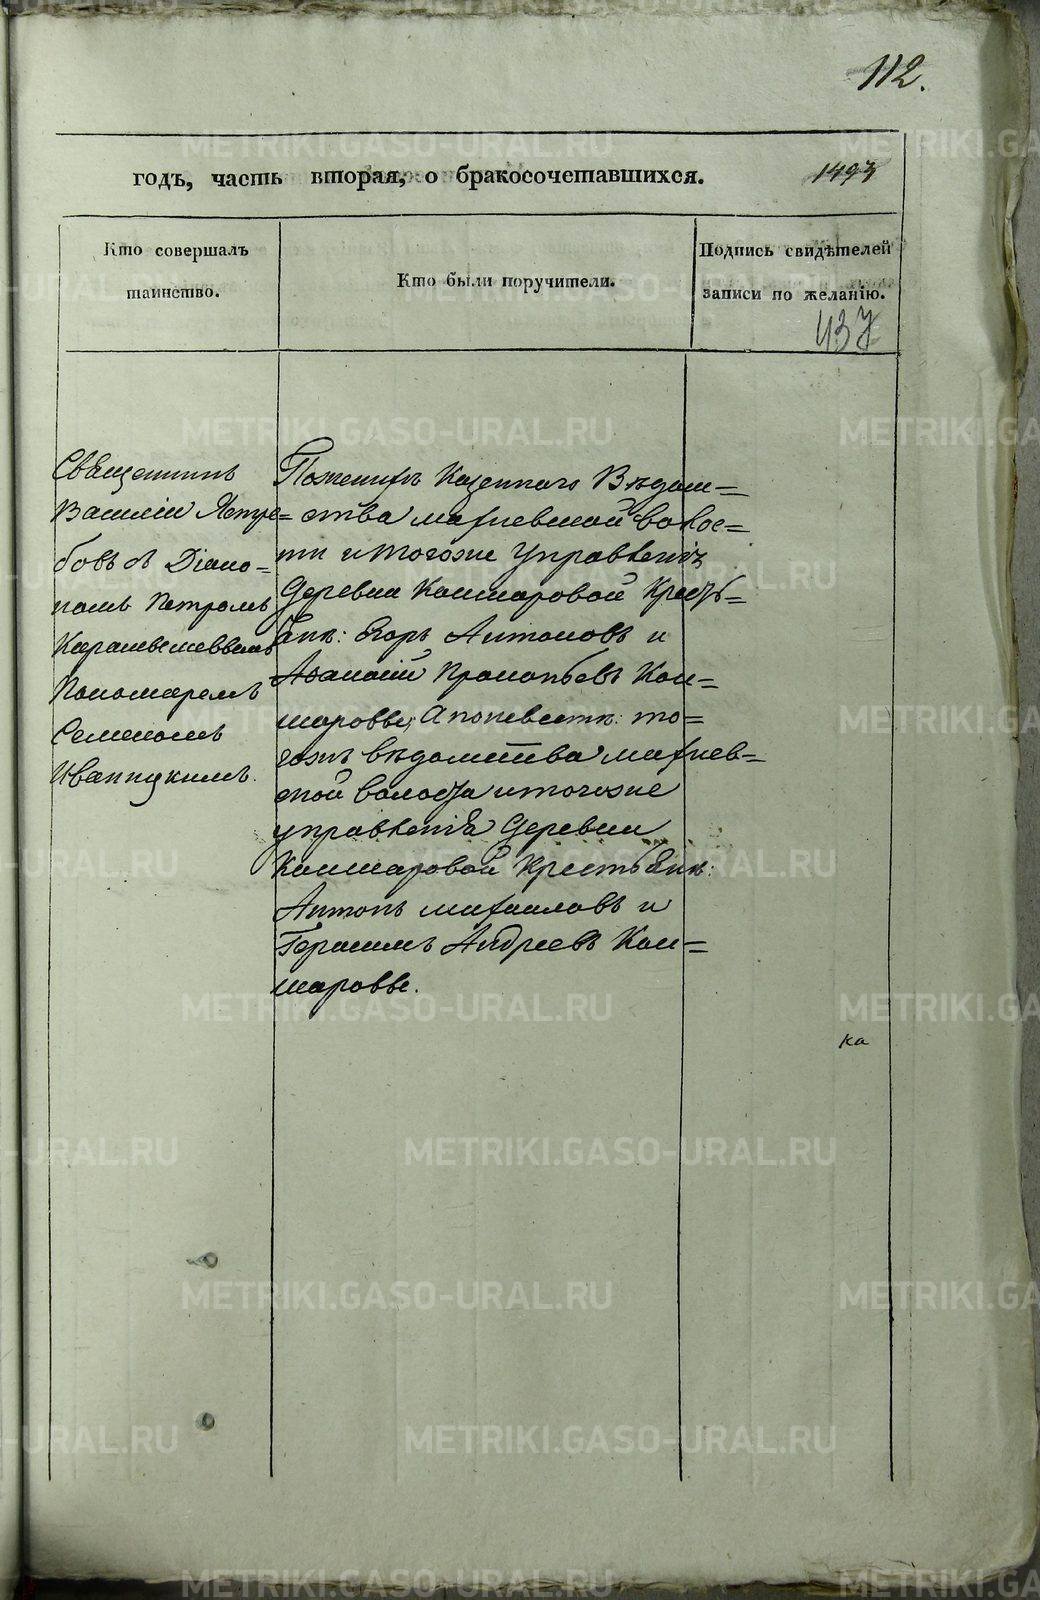 112.
годъ, часть вторая, о бракосочетавшихся.
1493
Кто совершалъ
таинство.
Кто были поручители.
Подпись свидѣтелей
записи по желанію.
437
Священникъ
Василій Ястре=
бовъ съ Діако=
номъ Петромъ
Пономаремъ
Семеномъ
Иваницкимъ.
По женихѣ Казеннаго Вѣдом=
ства волос=
ти и тогоже Управленія
Деревни Кошкаровой Крестья=
Егоръ Антоновъ и
Афанасій Прокопьевъ Кош=
каровы, а по невѣстѣ: то=
гожъ вѣдомства
ской волости и тогоже
управленія Деревни
Кошкаровой Крестьяне:
Антонъ Михайловъ и
Герасимъ Андреевъ Кош=
каровы.
ка
METRIKI.GASO-URAL.RU